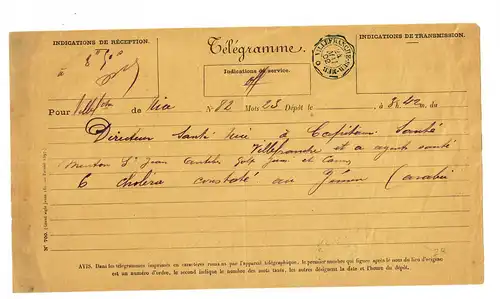 INDICATIONS DE RÉCEPTION.
Télégramme.
INDICATIONS DE TRANSMISSION.
VILLEFRANCHE-SUR-MER
Indications de service.
off
Pour Villefche de Nice N° 82 Mots 23 Dépôt le à 8h 22 m. du
Directeur Santé Nice à Capitaine Santé
Villefranche et a agents santé
Menton St Jean Antibes Golfe Juan et Cannes
Choléra constaté au Yémen (arabie
AVIS. Dans les télégrammes imprimés en caractères romains par l'appareil télégraphique, le premier nombre qui figure après le nom du lieu d'origine
est un numéro d'ordre, le second indique le nombre des mots taxés, les autres désignent la date et l'heure du dépôt.